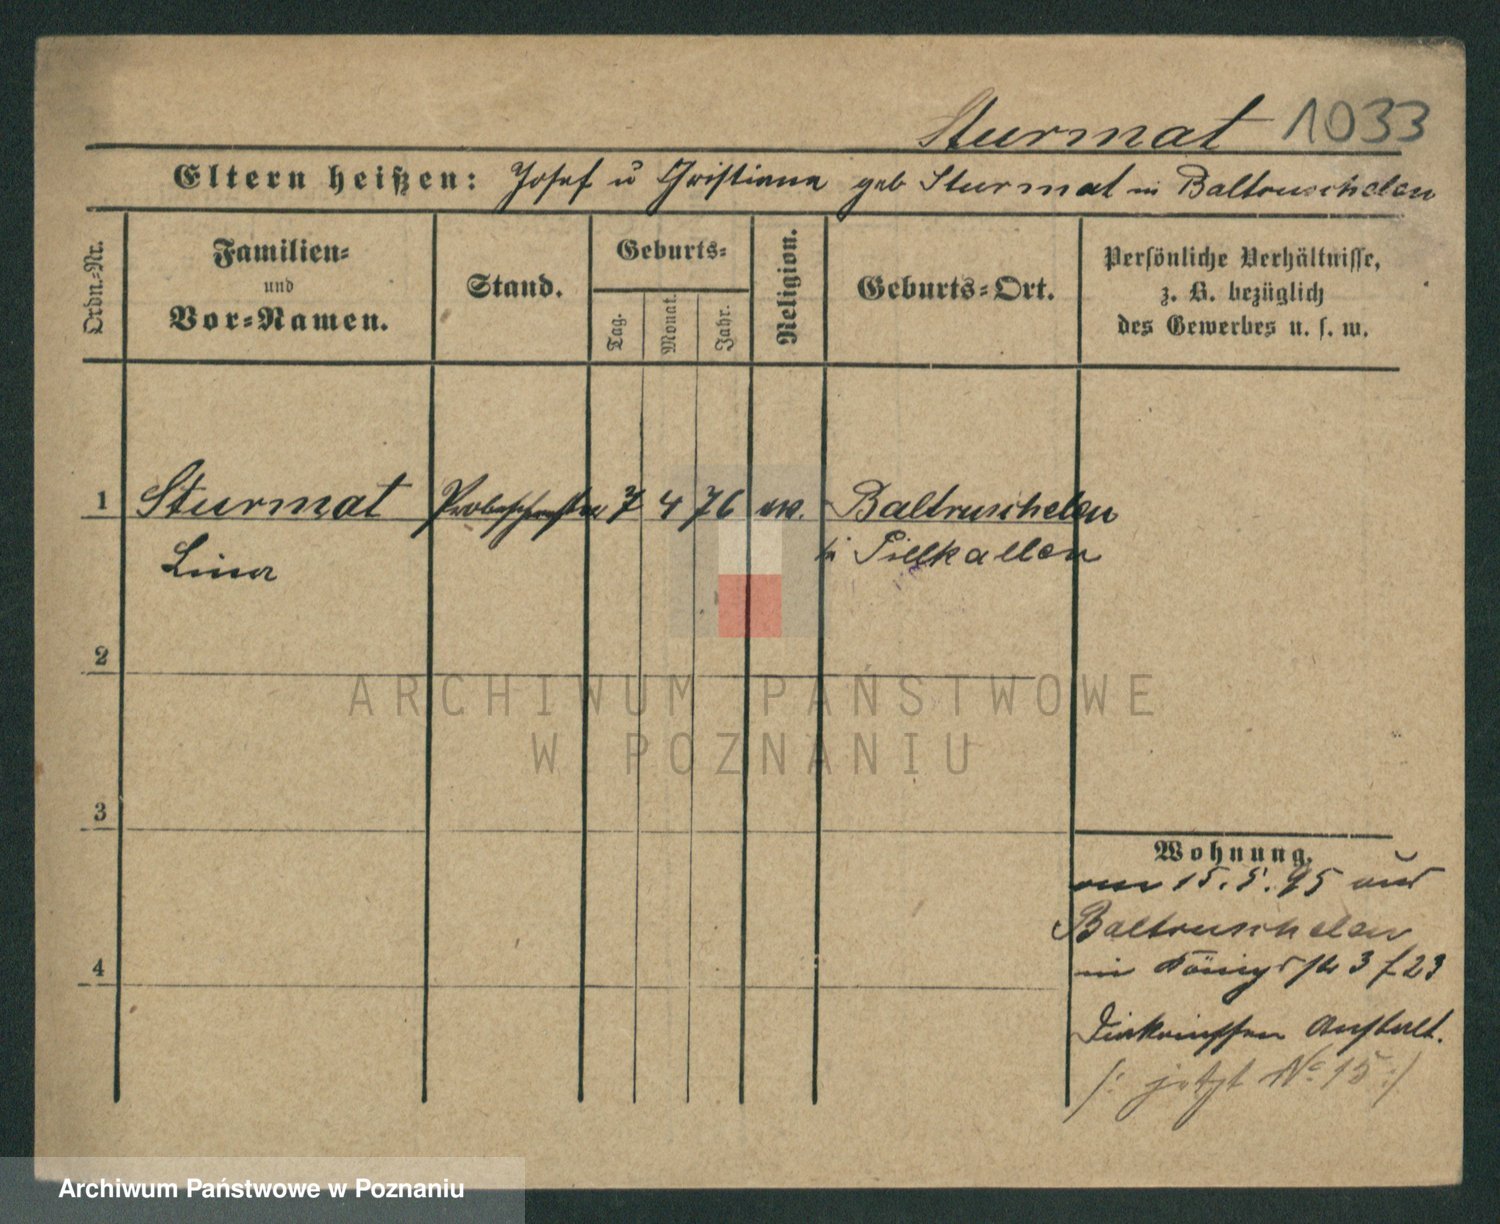 Sturmat 1033
Eltern heißen: Josef u Christiana geb Sturmat in Baltruschelen
Ordn.=Nr.
Familien=
und
Vor=Namen.
Stand.
Geburts=
Tag.
Monat.
Jahr.
Religion.
Geburts=Ort.
Persönliche Verhältnisse,
z. B. bezüglich
des Gewerbes u. s. w.
1 Sturmat Probeschwester 7 4 76 ev. Baltruschelen
Lina
Pillkallen
2
3
4
Wohnung.
am 15.5.95 aus
Baltruschelen
in Königstr 3 f 23
Diakonissen Anstalt.
/: jetzt No 15 :/
ARCHIWUM PAŃSTWOWE
W POZNANIU
Archiwum Państwowe w Poznaniu